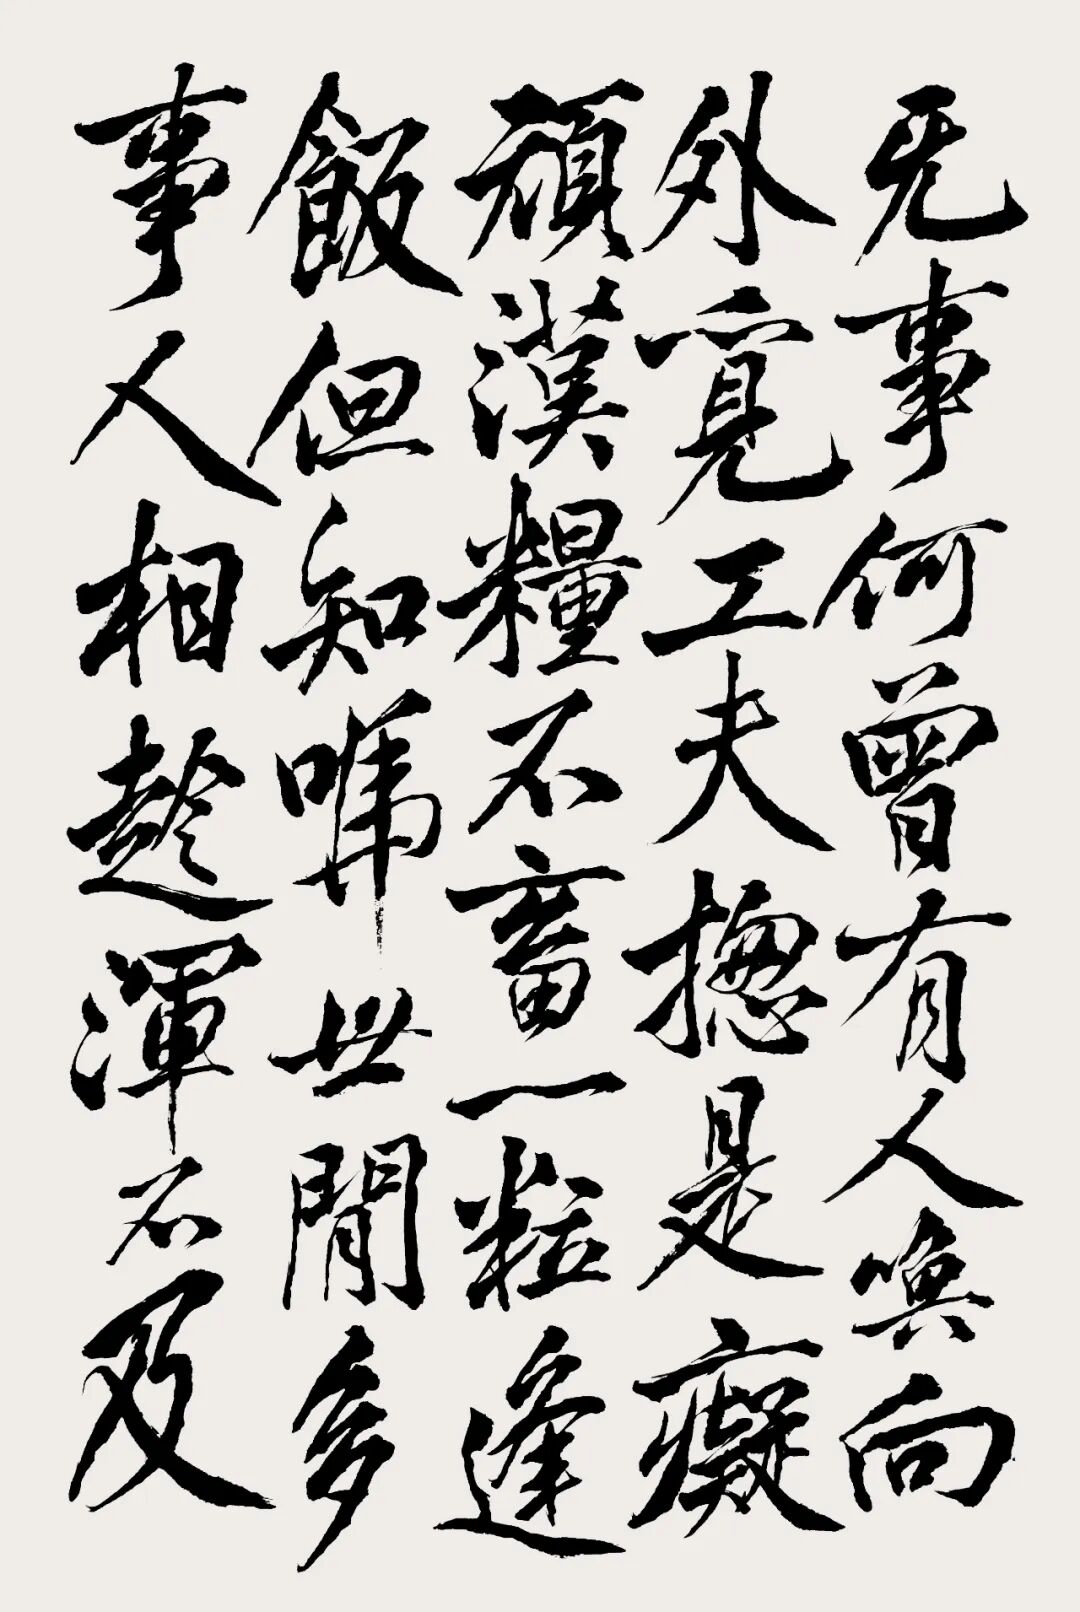 无事何曾有人喚向
外覓工夫摠是癡
頑漢糧不畜一粒逢
飯但知世閒多
事人相趁渾不及